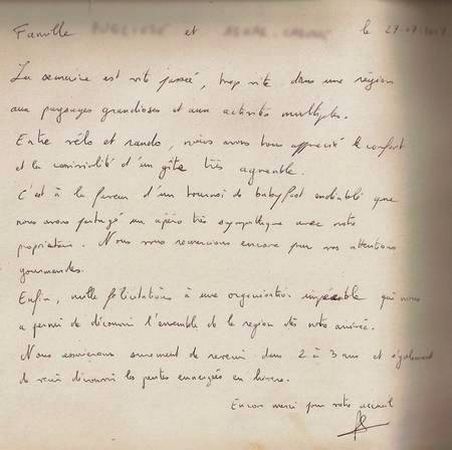 Famille et le
La semaine est vite passée, trop vite dans une région
aux paysages grandioses et aux activités multiples.
Entre vélo et rando, nous avons tous apprécié le confort
et la convivialité d'un gîte très agréable.
C'est à la faveur d'un tournoi de babyfoot endiablé que
nous avons partagé un apéro très sympathique avec notre
propriétaire. Nous vous remercions encore pour vos attentions
gourmandes.
Enfin, mille félicitations à une organisation impeccable qui nous
a permis de découvrir l'ensemble de la région dès notre arrivée.
Nous essaierons surement de revenir dans 2 à 3 ans et également
de venir découvrir les pentes enneigées en hiver.
Encore merci pour votre accueil